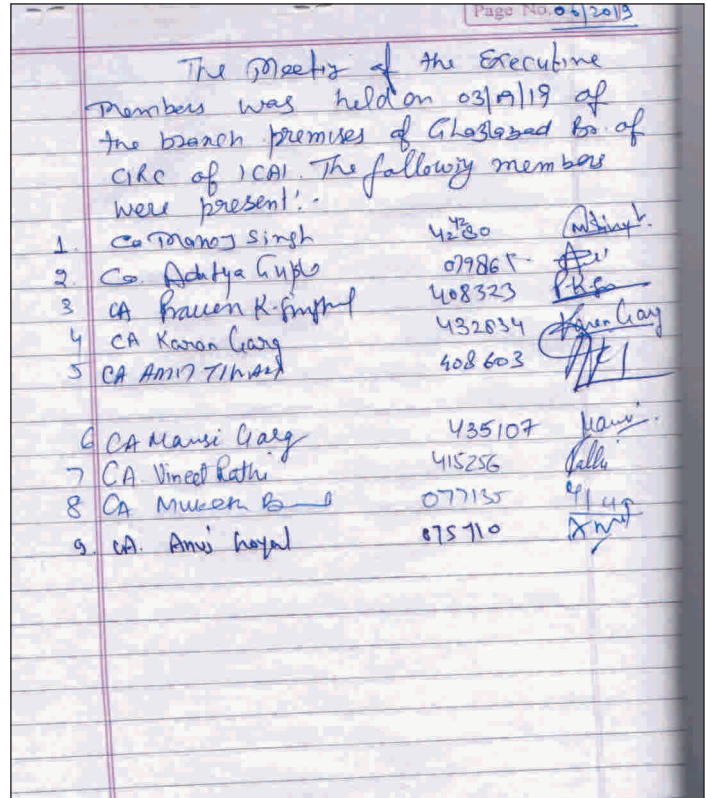 Page No. 06/2019
The Meeting of the Executive
Members was held on 03/09/19 of
the branch premises of Ghaziabad Br. of
CIRC of ICAI. The following members
were present:-
1. Ca Manoj Singh
2. Ca. Aditya Gupta 079865
3 CA Praveen K. Singhal 408323
4 CA Karan Garg 432834 Karan Garg
5 CA AMIT TIWARI 408603
6 CA Mansi Garg 435107 Mansi
7 CA Vineet Rathi 415256 Rathi
8 CA Mukesh 077135
9. CA. Anuj Goyal 075710